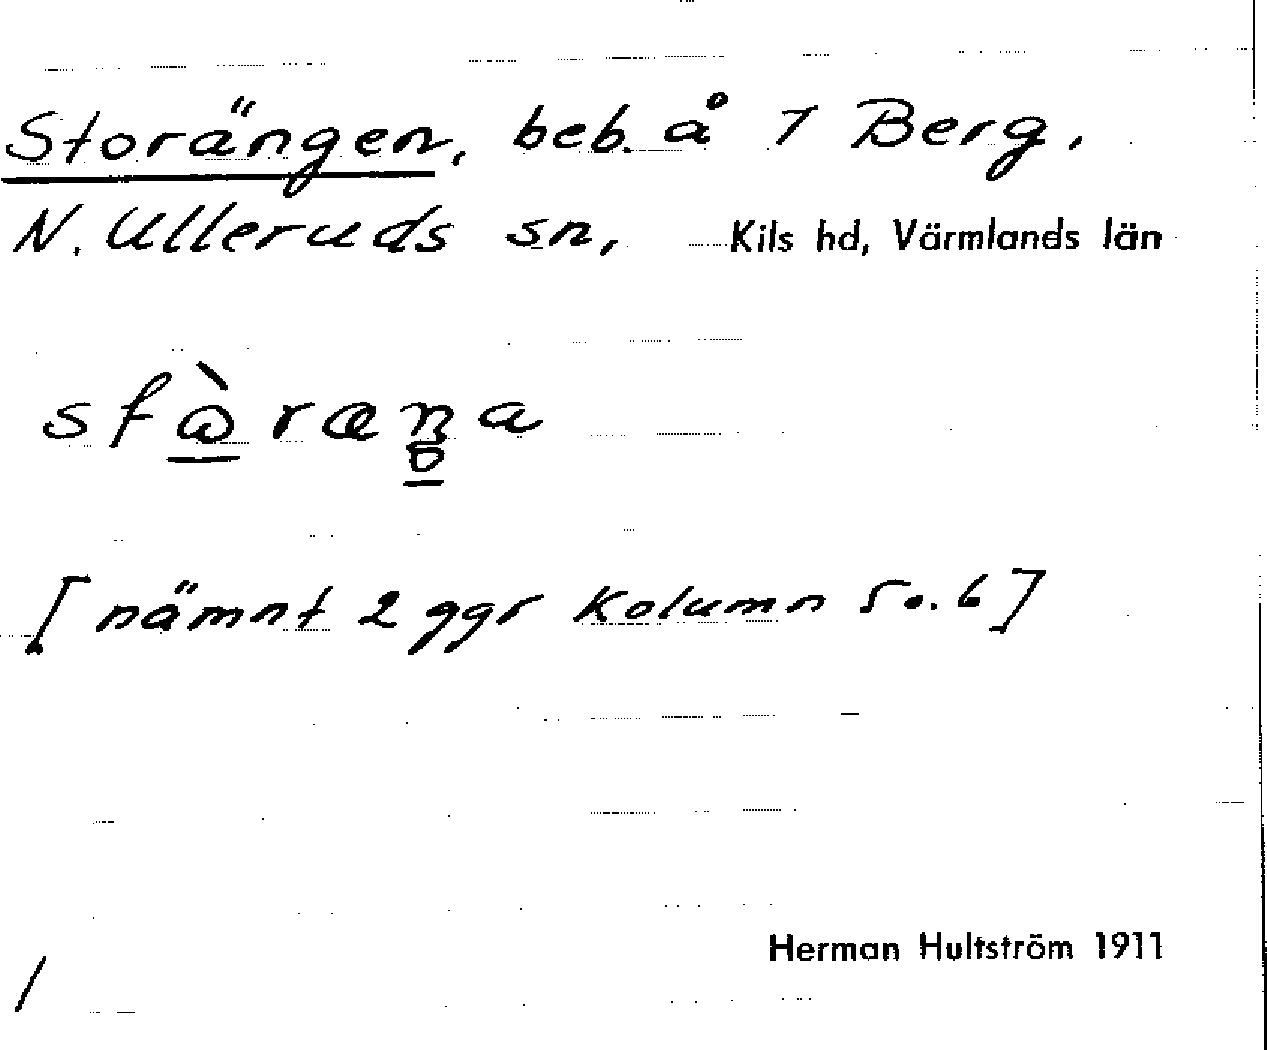 Storängen, beb. å 1 Berg,
N. Ulleruds sn, Kils hd, Värmlands län
[nämnt 2 ggr Kolumn 5 o. 6]
Herman Hultström 1911
/